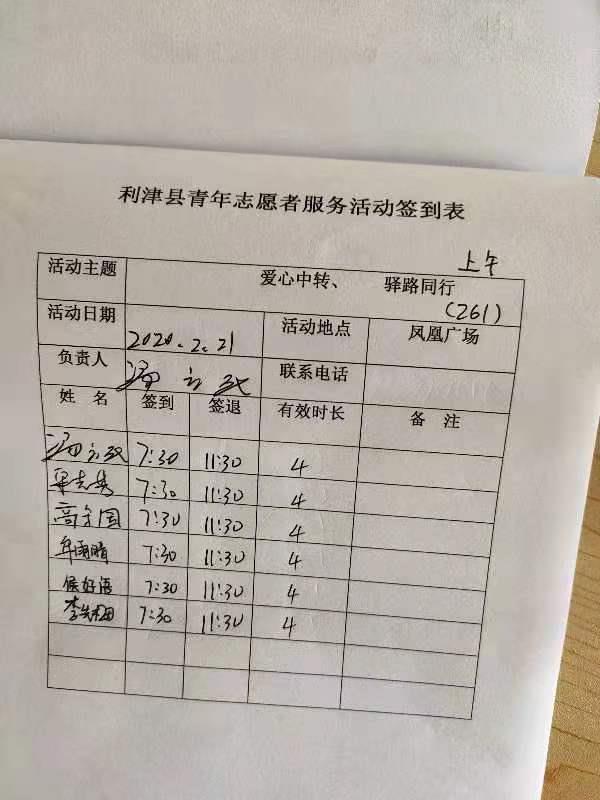 利津县青年志愿者服务活动签到表
上午
活动主题 爱心中转、 驿路同行
(261)
活动日期 2020.2.21 活动地点 凤凰广场
负责人 联系电话
姓名 签到 签退 有效时长 备注
7:30 11:30 4
7:30 11:30 4
高 国 7:30 11:30 4
牟雨晴 7:30 11:30 4
侯好语 7:30 11:30 4
李 梅 7:30 11:30 4